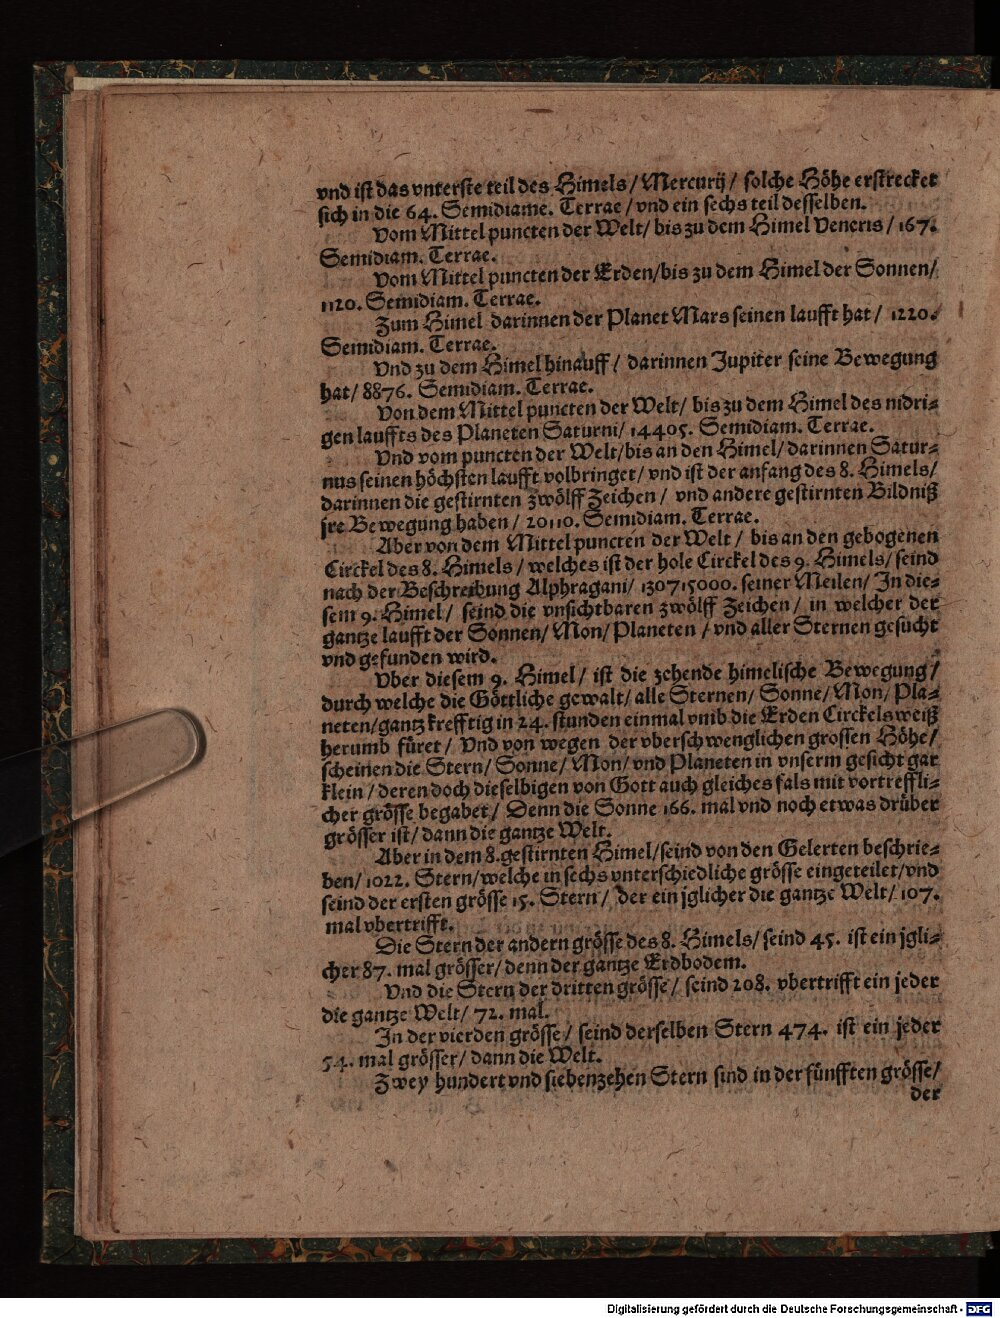 vnd ist das vnterste teil des Himels / Mercurij / solche Höhe erstrecket
sich in die 64. Semidiame. Terrae / vnd ein sechs teil desselben.
Vom Mittel puncten der Welt / bis zu dem Himel Veneris / 167.
Semidiam. Terrae.
Vom Mittel puncten der Erden / bis zu dem Himel der Sonnen /
1120. Semidiam. Terrae.
Zum Himel darinnen der Planet Mars seinen laufft hat / 1220.
Semidiam. Terrae.
Vnd zu dem Himel hinauff / darinnen Jupiter seine Bewegung
hat / 8876. Semidiam. Terrae.
Von dem Mittel puncten der Welt / bis zu dem Himel des nidri-
gen lauffts des Planeten Saturni / 14405. Semidiam. Terrae.
Vnd vom puncten der Welt / bis an den Himel / darinnen Satur-
nus seinen höchsten laufft volbringet / vnd ist der anfang des 8. Himels /
darinnen die gestirnten zwölff Zeichen / vnd andere gestirnten Bildniß
jre Bewegung haben / 20110. Semidiam. Terrae.
Aber von dem Mittel puncten der Welt / bis an den gebogenen
Circkel des 8. Himels / welches ist der hole Circkel des 9. Himels / seind
nach der Beschreibung Alphragani / 130715000. seiner Meilen / In die-
sem 9. Himel / seind die vnsichtbaren zwölff Zeichen / in welcher der
gantze laufft der Sonnen / Mon / Planeten / vnd aller Sternen gesucht
vnd gefunden wird.
Vber diesem 9. Himel / ist die zehende himelische Bewegung /
durch welche die Göttliche gewalt / alle Sternen / Sonne / Mon / Pla-
neten / gantz krefftig in 24. stunden einmal vmb die Erden Circkelsweiß
herumb füret / Vnd von wegen der vberschwenglichen grossen Höhe /
scheinen die Stern / Sonne / Mon / vnd Planeten in vnserm gesicht gar
klein / deren doch dieselbigen von Gott auch gleiches fals mit vortreffli-
cher grösse begabet / Denn die Sonne 166. mal vnd noch etwas drüber
grösser ist / dann die gantze Welt.
Aber in dem 8. gestirnten Himel / seind von den Gelerten beschrie-
ben / 1022. Stern / welche in sechs vnterschiedliche grösse eingeteilet / vnd
seind der ersten grösse 15. Stern / der ein jglicher die gantze Welt / 107.
mal vbertrifft.
Die Stern der andern grösse des 8. Himels / seind 45. ist ein jgli-
cher 87. mal grösser / denn der gantze Erdbodem.
Vnd die Stern der dritten grösse / seind 208. vbertrifft ein jeder
die gantze Welt / 72. mal.
In der vierden grösse / seind derselben Stern 474. ist ein jeder
54. mal grösser / dann die Welt.
Zwey hundert vnd siebenzehen Stern sind in der fünfften grösse /
der
Digitalisierung gefördert durch die Deutsche Forschungsgemeinschaft - DFG